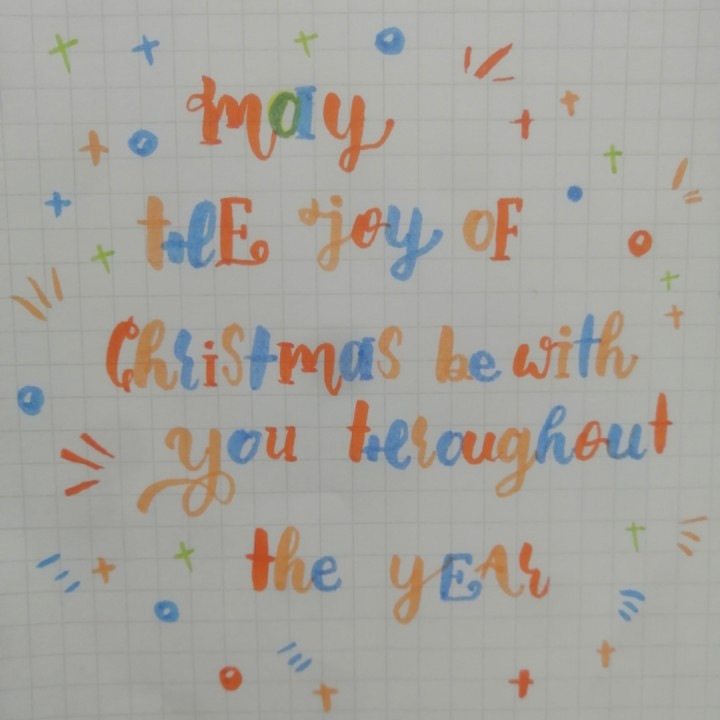 may
thE joy OF
Christmas be with
you throughout
the yEAr